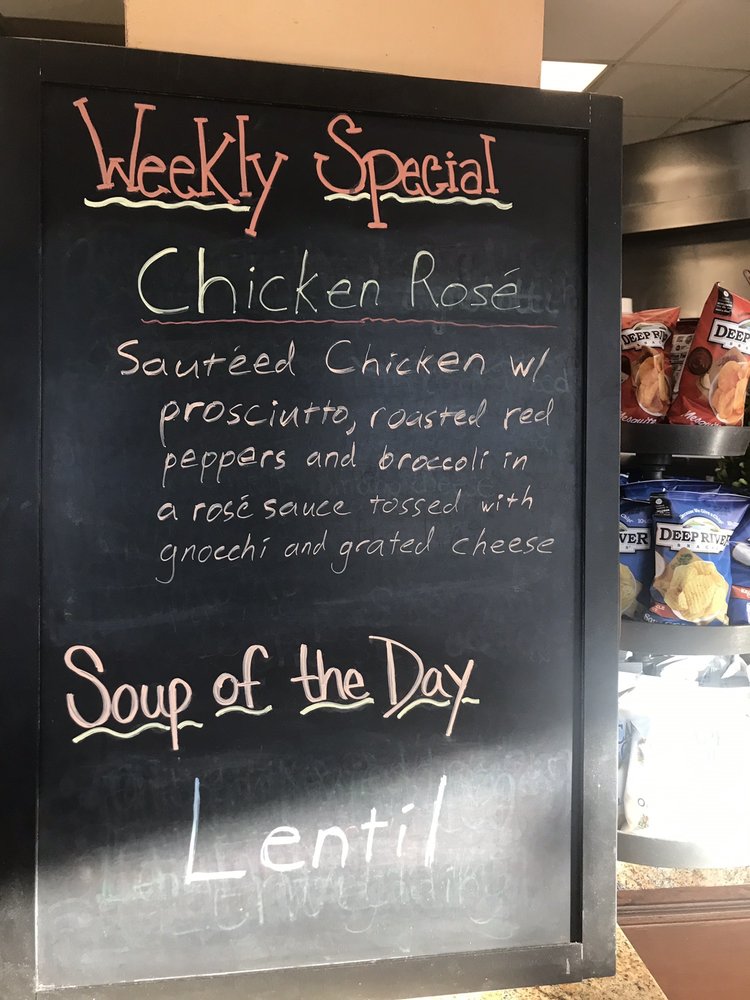 Weekly Special
Chicken Rosé
Sautéed Chicken w/
prosciutto, roasted red
peppers and broccoli in
a rosé sauce tossed with
gnocchi and grated cheese
Soup of the Day
Lentil
DEEP RIVER
DEEP RIVER
Mesquite
VER
DEEP RIVER
SNACKS